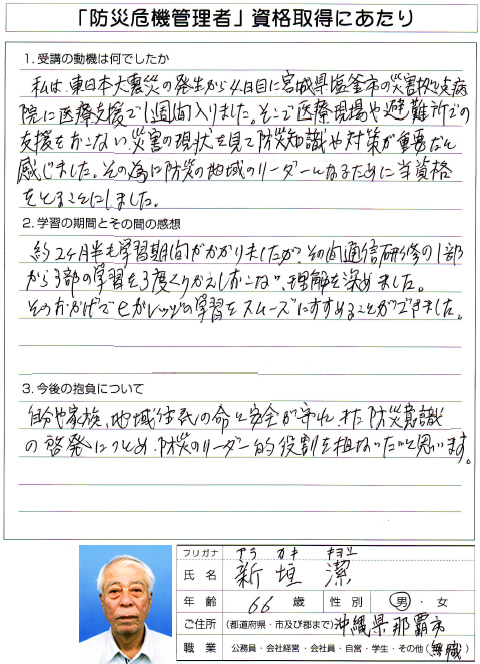 「防災危機管理者」資格取得にあたり
1.受講の動機は何でしたか
私は、東日本大震災の発生から4日目に宮城県塩釜市の災害拠点病
院に医療支援で1週間入りました。そこで医療現場や避難所での
支援をおこない、災害の現状を見て防災知識や対策が重要だと
感じました。その為に防災の地域のリーダーとなるために当資格
をとることにしました。
2.学習の期間とその間の感想
約2ヶ月半も学習期間がかかりましたが、その間通信研修の1部
から3部の学習を3度くりかえしおこない、理解を深めました。
そのおかげでeカレッジの学習をスムーズにすすめることができました。
3.今後の抱負について
自分や家族、地域住民の命と安全が守れ、また防災意識
の啓発につとめ、防災のリーダー的役割を担ないたいと思います。
フリガナ アラ カキ キヨシ
氏名 新垣 潔
年齢 66 歳 性別 男・女
ご住所 (都道府県・市及び郡まで) 沖縄県那覇市
職業 公務員・会社経営・会社員・自営・学生・その他(無職)